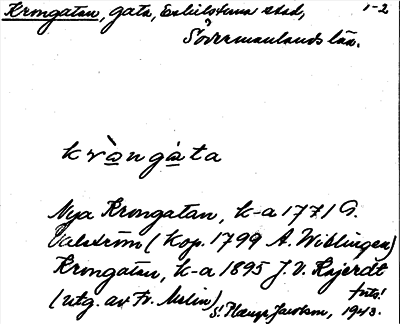 Krongatan, gata, Eskilstuna stad, 1-2
Södermanlands län.
kròngàta
Nya Krongatan, k-a 1771 G.
Valström (kop. 1799 A. Wiblingen)
Krongatan, k-a 1895 J. V. Kajerdt
(utg. av Fr. Melin) forts!
S. Hampf Jacobson, 1943.